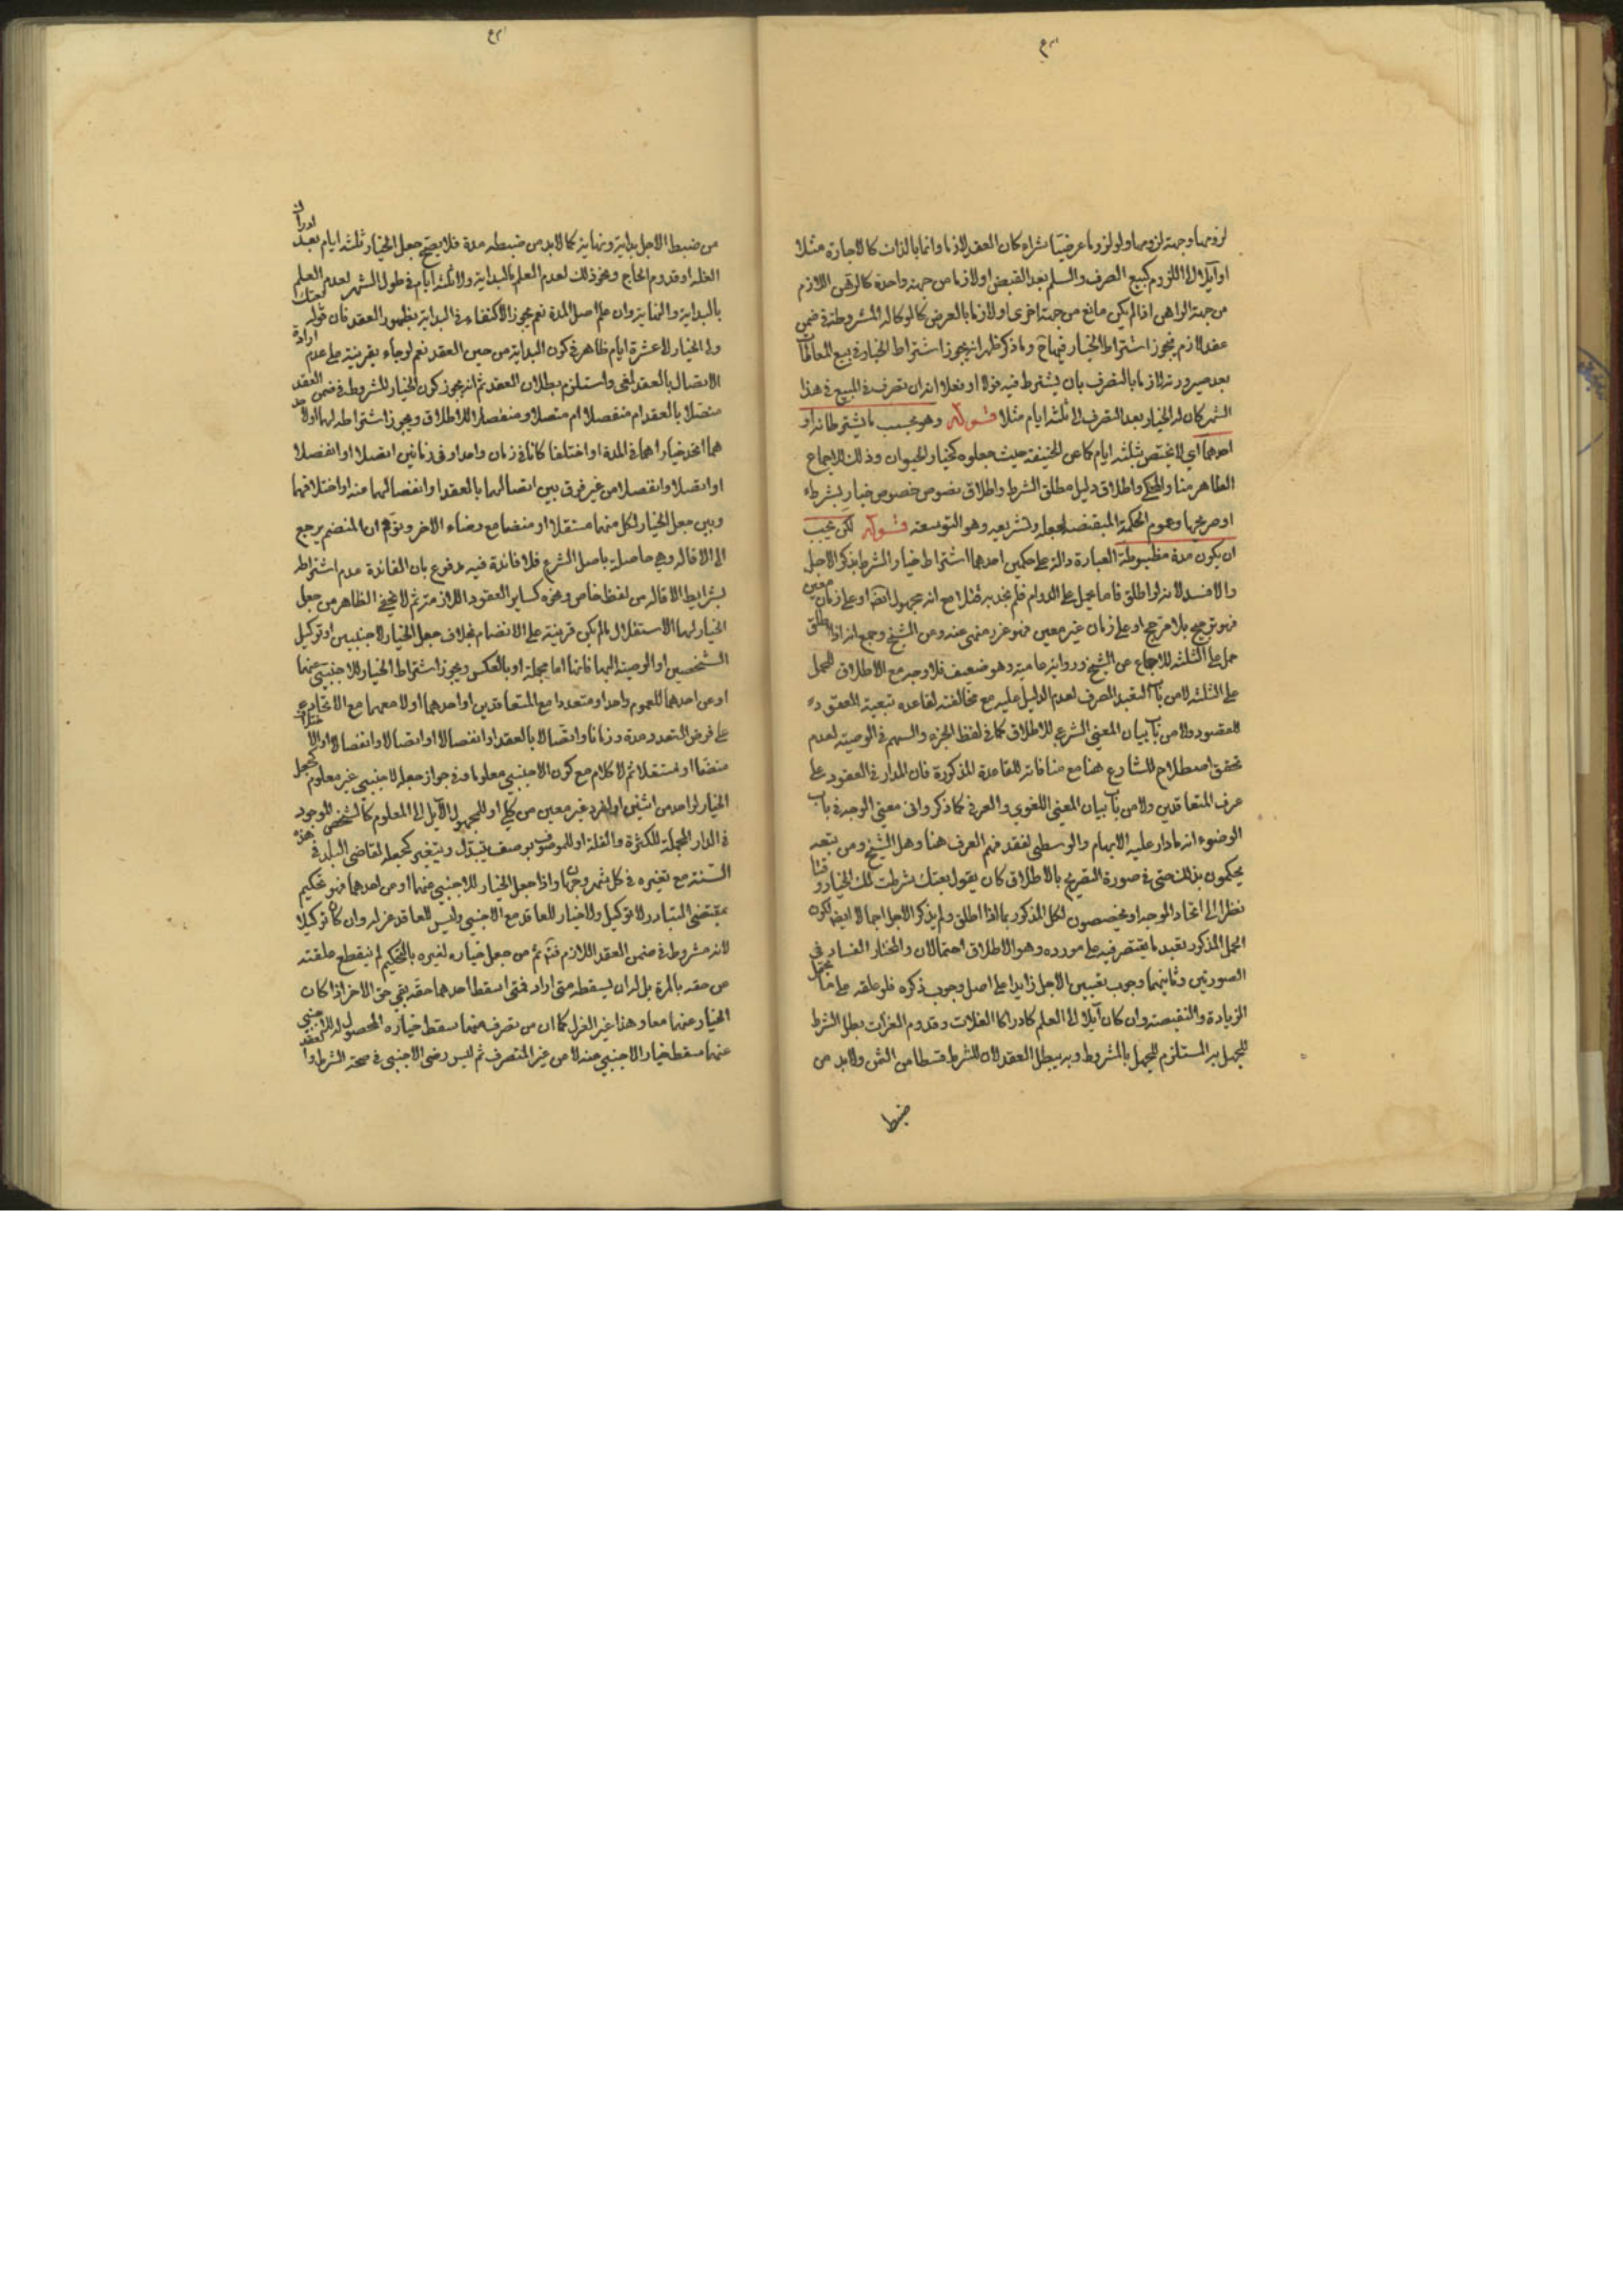 لزومها وجهة لزومها ولو لزوما عرضيا سواء كان العقد لازما دائما بالذات كالاجارة مثلا
او آيلا الى اللزوم كبيع الصرف والسلم بعد القبض او لازما من جهة واحدة كالرهن اللازم
من جهة الراهن اذا لم يكن مانع من جهة اخرى او لازما بالعرض كالوكالة المشروطة في ضمن
عقد لازم فيجوز اشتراط الخيار فيها ح وما ذكر ظهر انه يجوز اشتراط الخيار في بيع المعاطاة
بعد صيرورته لازما بالتصرف بان يشترط فيه قولا او فعلا انه ان تصرف في المبيع في هذا
الشهر كان له الخيار بعد التصرف الى ثلثه ايام مثلا قوله وهو بحسب ما يشترطانه او
احدهما اي لا يختص بثلثه ايام كما عن الحنيفة حيث جعلوه كخيار الحيوان وذلك للاجماع
الظاهر منا والمحكي واطلاق دليل مطلق الشرط واطلاق نصوص خصوص خيار الشرط
او صريحها وعموم الحكمة المقتضية لجعله وتشريعه وهو التوسعة قوله لكن يجب
ان يكون مدة مضبوطة العبارة دالة على حكمين احدهما اشتراط خيار الشرط بذكر الاجل
والا فسد لانه لو اطلق فاما يحمل على الدوام فلم نجد به قائلا مع انه مجهول ايضا او على زمان معين
فهو ترجيح بلا مرجح او على زمان غير معين فهو غرر منهي عنه ومن الشيخ وجمع انه اذا اطلق
حمل على الثلثه للاجماع عن الشيخ ورواية عامية وهو ضعيف فلا وجه مع الاطلاق للحمل
على الثلثه لا من باب التعبد الصرف لعدم الدليل عليه مع مخالفته لقاعدة تبعية العقود
للقصود ولا من باب بيان المعنى الشرعي للاطلاق كما في لفظ الجزء والسهم في الوصية لعدم
تحقق اصطلاح للشارع هنا مع منافاته للقاعدة المذكورة فان المدار في العقود على
عرف المتعاقدين ولا من باب بيان المعنى اللغوي والعرفي كما ذكروا في معنى الوجه في باب
الوضوء انه ما دار عليه الابهام والوسطى لفقد فهم العرف هنا وهل الشيخ ومن تبعه
يحكمون بذلك حتى في صورة التصريح بالاطلاق كان يقول بعتك بشرط لك الخيار وقتا
نظرا الى اتحاد الموجه او يخصصون الحكم المذكور بما اذا اطلق ولم يذكر الاجل اجمالا ايضا لكون
الحمل المذكور تعبد ما يقتصر فيه على مورده وهو الاطلاق احتمالان والمختار الفساد في
الصورتين وثانيهما وجوب تعيين الاجل زايدا على اصل وجوب ذكره فلو علقه على ما يحتمل
الزيادة والنقيصة وان كان آيلا الى العلم كادراك الغلات وقدوم الغزات بطل الشرط
للجهل به المستلزم للجهل بالمشروط وبه يبطل العقد لان للشرط قسطا من الثمن ولا بد من
ضبط
من ضبط الاجل بداية ونهاية كما لا بد من ضبطه مدة فلا يصح جعل الخيار ثلثه ايام بعد ادراك
الغلة او قدوم الحاج ونحو ذلك لعدم العلم بالبداية ولا ثلثه ايام في طول الشهر لعدم العلم
بالبداية والنهاية وان علم اصل المدة نعم يجوز الاكتفاء في البداية بظهور العقد فان قوله بعتك
ولي الخيار لا عشرة ايام ظاهر في كون البداية من حين العقد نعم لو جاء بقرينة على عدم ارادة
الاتصال بالعقد لغى واستلزم بطلان العقد ثم انه يجوز كون الخيار المشروط في ضمن العقد
متصلا بالعقد ام منفصلا ام متصلا ومنفصلا للاطلاق ويجوز اشتراطه لهما او لاحد
هما اتحد خياراهما في المدة او اختلفا كانا في زمان واحد او في زمانين اتصلا او انفصلا
او اتصلا وانفصلا من غير فرق بين اتصالهما بالعقد او انفصالهما منه او اختلافهما
وبين جعل الخيار لكل منهما مستقلا او منضما مع رضاء الاخر وتوهم ان المنضم يرجع
الى الاقالة وهي حاصلة باصل الشرع فلا فائدة فيه مدفوع بان الفائدة عدم اشتراطه
بشرايط الاقالة من لفظ خاص ونحوه كساير العقود اللازمة ثم لا يخفى الظاهر من جعل
الخيار لهما الاستقلال ما لم يكن قرينة على الانضمام بخلاف جعل الخيار لاجنبيين او توكيل
الشخصين او الوصية اليهما فانها اما مجملة او بالعكس ويجوز اشتراط الخيار للاجنبي عنهما
او عن احدهما للعموم واحدا ومتعددا مع المتعاقدين او احدهما او لا معهما مع الاتحاد
على فرض التعدد مدة وزمانا واتصالا بالعقد او انفصالا او اتصالا وانفصالا
منضما او مستقلا ثم لا كلام مع كون الاجنبي معلوما وفي جواز جعله لاجنبي غير معلوم كجعل
الخيار لواحد من اثنين او لفرد غير معين من كلي او للمجهول الآيل الى المعلوم كالشخص الموجود
في الدار المجملة للكثرة والقلة او للموصوف بوصف يتبدل ويتغير كجعله لقاضي البلد في هذه
السنة مع تغيره في كل شهر وجهان واذا جعل الخيار للاجنبي عنهما او من احدهما فهو تحكيم
بمقتضى التبادر لا توكيل ولا خيار للعاقد مع الاجنبي وليس للعاقد عزله وان كان توكيلا
لانه مشروط في ضمن العقد اللازم ثم من جعل خياره لغيره بالتحكيم لم ينقطع علقته
عن حقه بالمرة بل له ان يسقطه متى اراد فمتى اسقط احدهما حقه بقي حق الاخر اذا كان
الخيار عنهما معا وهذا غير العزل كما ان من تصرف منهما سقط خياره المحصول له للاجنبي
عنهما سقط خيار الاجنبي عنه لا من غير المتصرف ثم ليس رضى الاجنبي في صحة الشرط والعقد